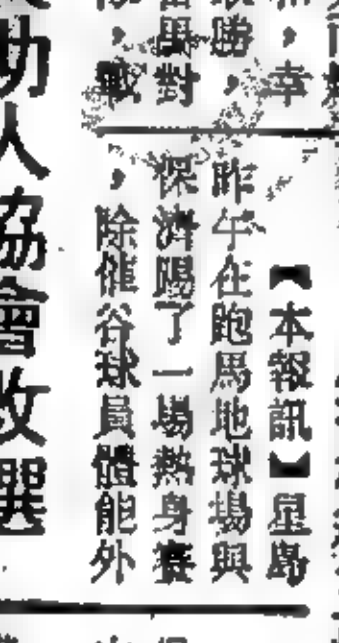 ，幸
勝，
畨對
，戰
【本報訊】星島
昨午在跑馬地球場與
保濟踢了一場熱身賽
，除催谷球員體能外
助人協會改選